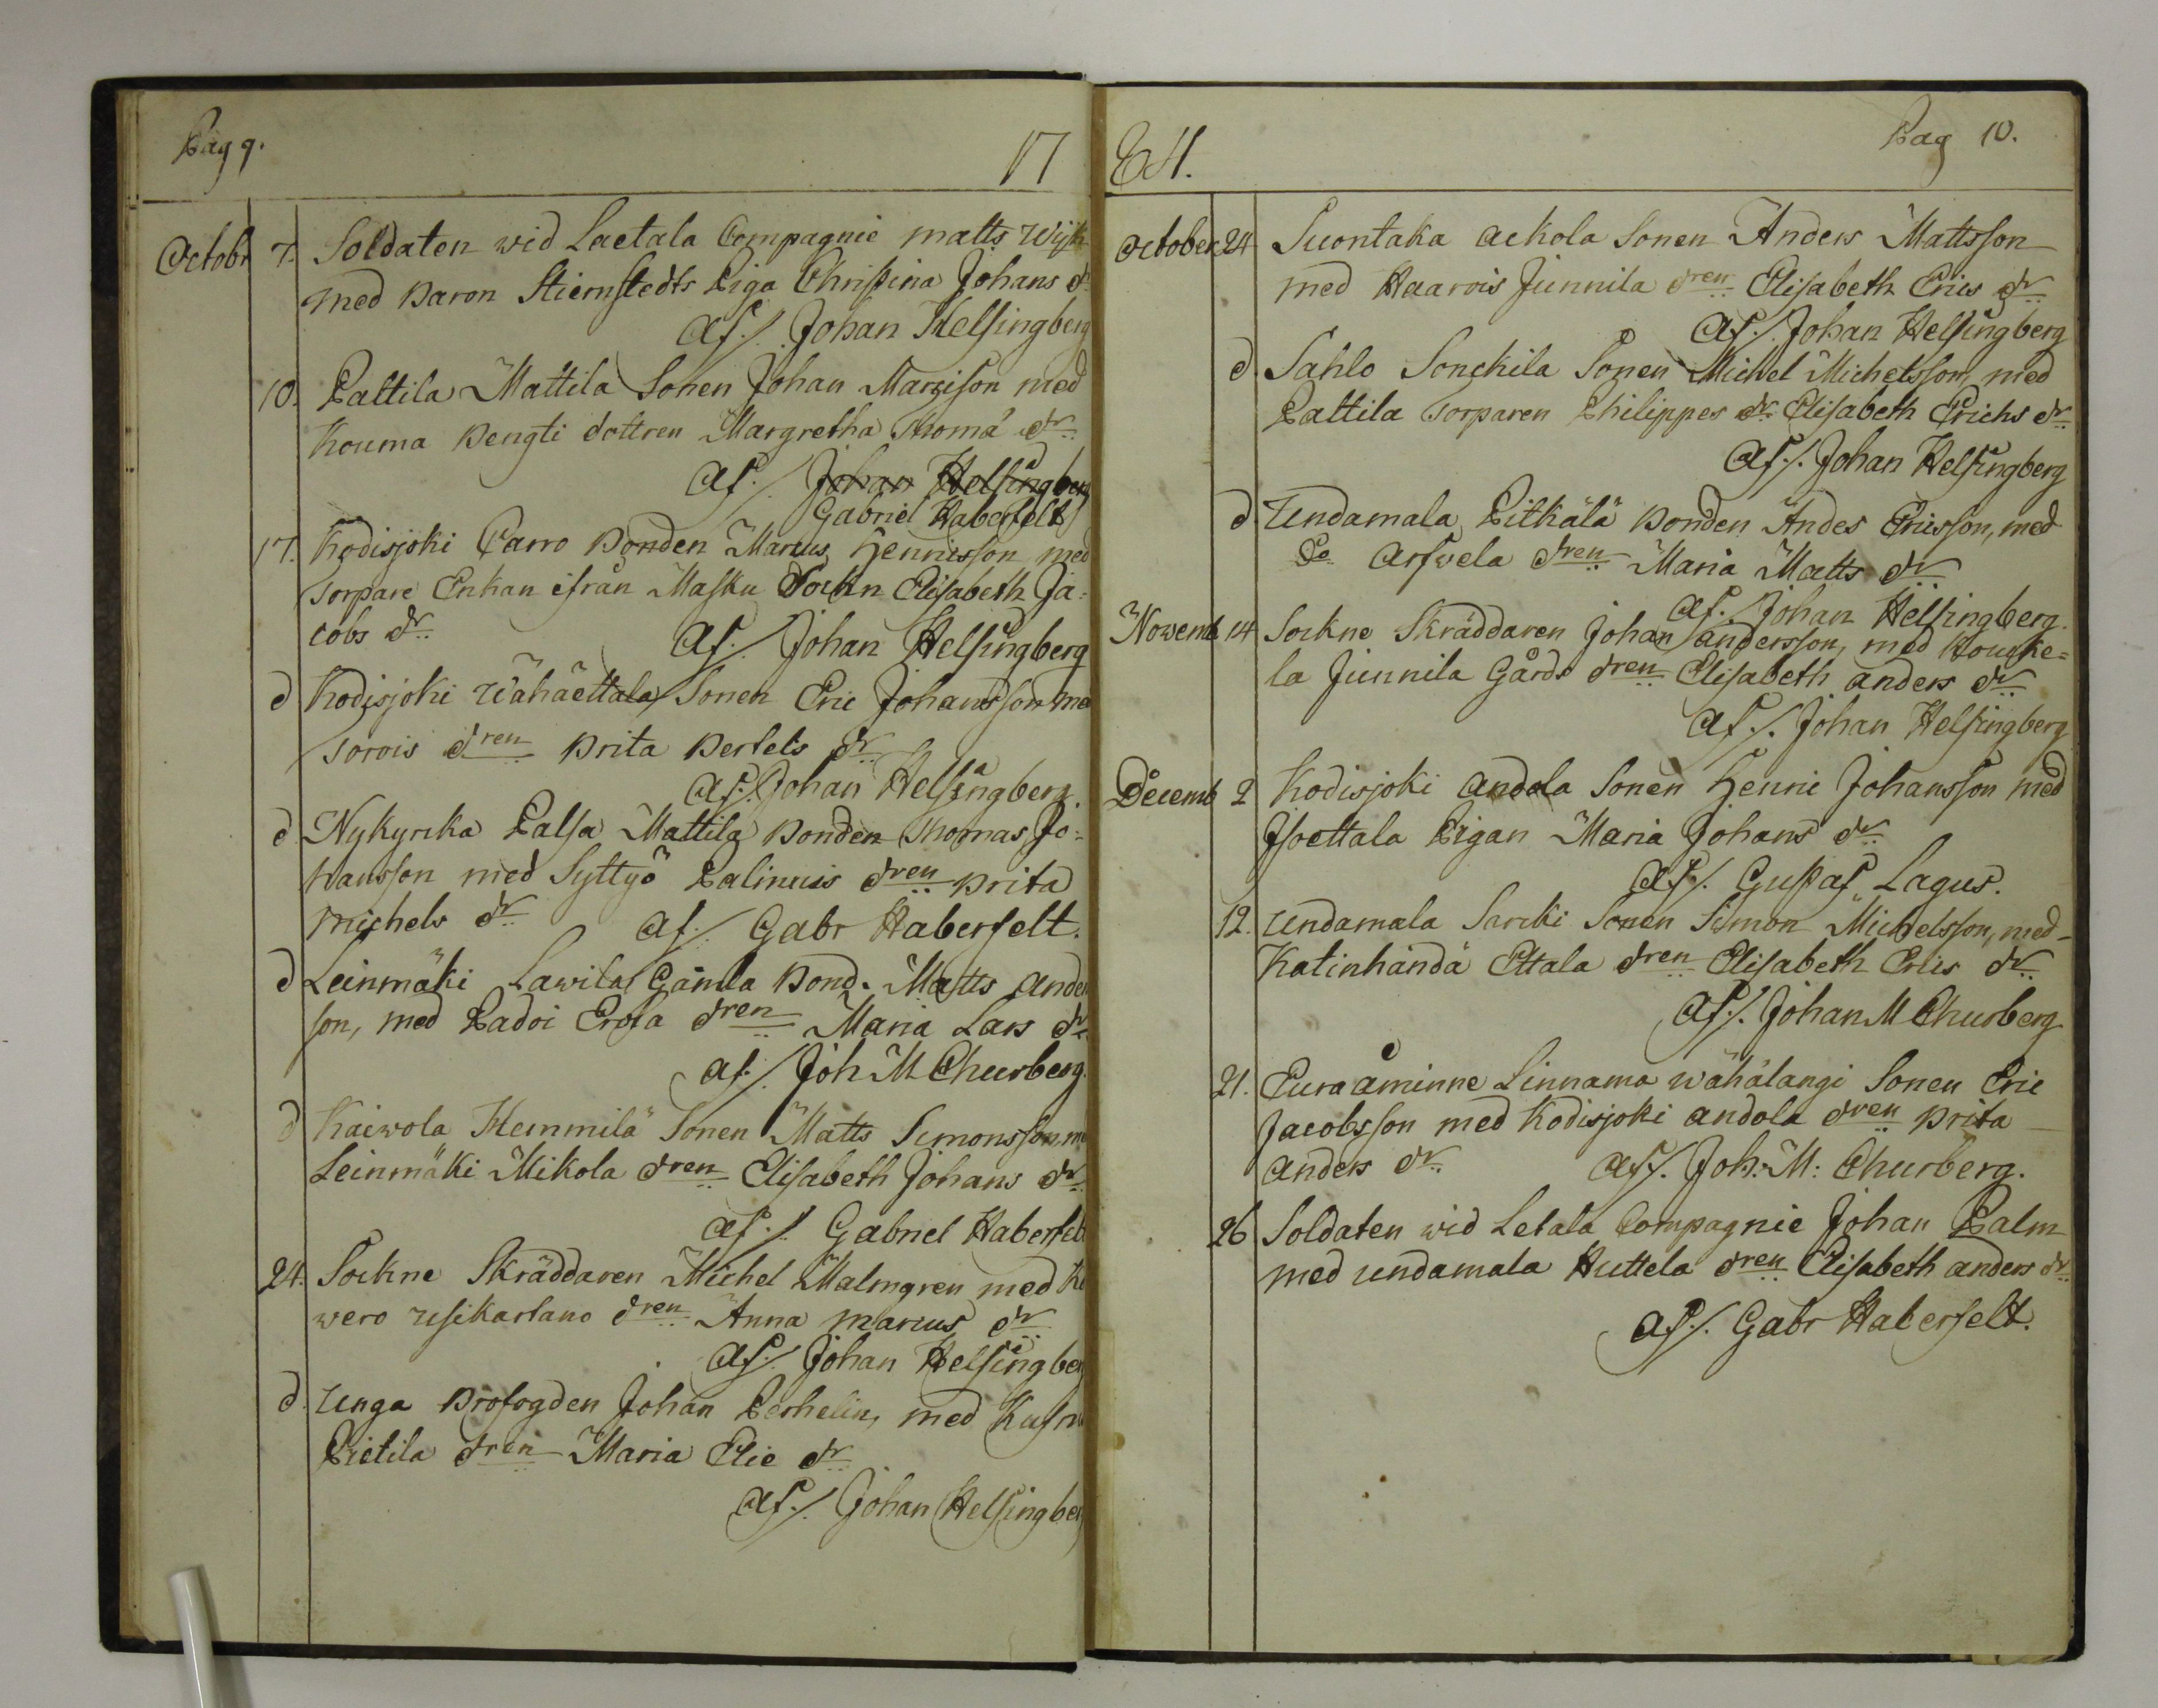 Pag 9.
17
Octobr 7. Soldaten wid Laetala Compagnie matts Wijk
med Baron Stiernstedts Piga Christina Johans dr
af./. Johan Helsingberg
10. Paltila Mattila Sonen Johan Marzison med
Kouma Bengti dottren Margretha Thomæ dr
af./. Johan Helsingberg
Gabriel Haberfelt
17. Kodisjoki Parro Bonden Marcus Henricsson med
torpare Enkan ifrån Masku Sockn Elisabeth Ja=
cobs dr af./. Johan Helsingberg
d Kodisjoki Wähäettala Sonen Eric Johansson med
torois dren Brita Bertels dr
af./. Johan Helsingberg.
d Nykyrka Palsa Mattila Bonden Thomas Jo=
hansson med Syttyö Palinuis dren Brita
Michels dr af./. Gabr Haberfelt.
d Leinmäki Lawila Gamla Bond. Matts Anders
son, med Padoi Erola dren Maria Lars dr
af./. Joh M Churberg.
d Kaiwola Hemmilä Sonen Matts Simonsson, med
Leinmäki Mikola dren Elisabeth Johans dr
af./. Gabriel Haberfelt
24. Sockne Skräddaren Michel Malmgren med Ko
wero Usikartano dren Anna Marcus dr
af./. Johan Helsingberg
d. Unga Brofogden Johan Perhelin, med
Pietila dren Maria Elie dr
af./. Johan Helsingberg
Pag 10.
84.
October 24 Suontaka Ackola Sonen Anders Mattsson
med Haarois Junnila dren Elisabeth Erics dr
af./. Johan Helsingberg
d Sahlo Sonckila Sonen Michel Michelsson, med
Pattila torparen Philippes dr Elisabeth Erichs dr
af./. Johan Helsingberg
d. Undamala Pitkälä Bonden Andes Ericsson, med
Do Arfwela dren Maria Matts dr
af./. Johan Helsingberg.
Novemb 14 Sockne Skräddaren Johan Andersson, med Kouke=
la Junnila Gårds dren Elisabeth Anders dr
af./. Johan Helsingberg
Decemb 2 Kodisjoki Andola Sonen Henric Johansson med
Isoettala Pigan Maria Johans dr
af./. Gustaf Lagus.
12. Undamala Sarcki Sonen Simon Michelsson, med
Katinhändä Ettala dren Elisabeth Erics dr
af./. Johan M Churberg
21. Euraåminne Linnama Wähälangi Sonen Eric
Jacobsson med Kodisjoki Andola dren Brita
Anders dr af./. Joh: M: Churberg.
26 Soldaten wid Letala Compagnie Johan Palm
med Undamala Huttela dren Elisabeth Anders dr
af./. Gabr Haberfelt.